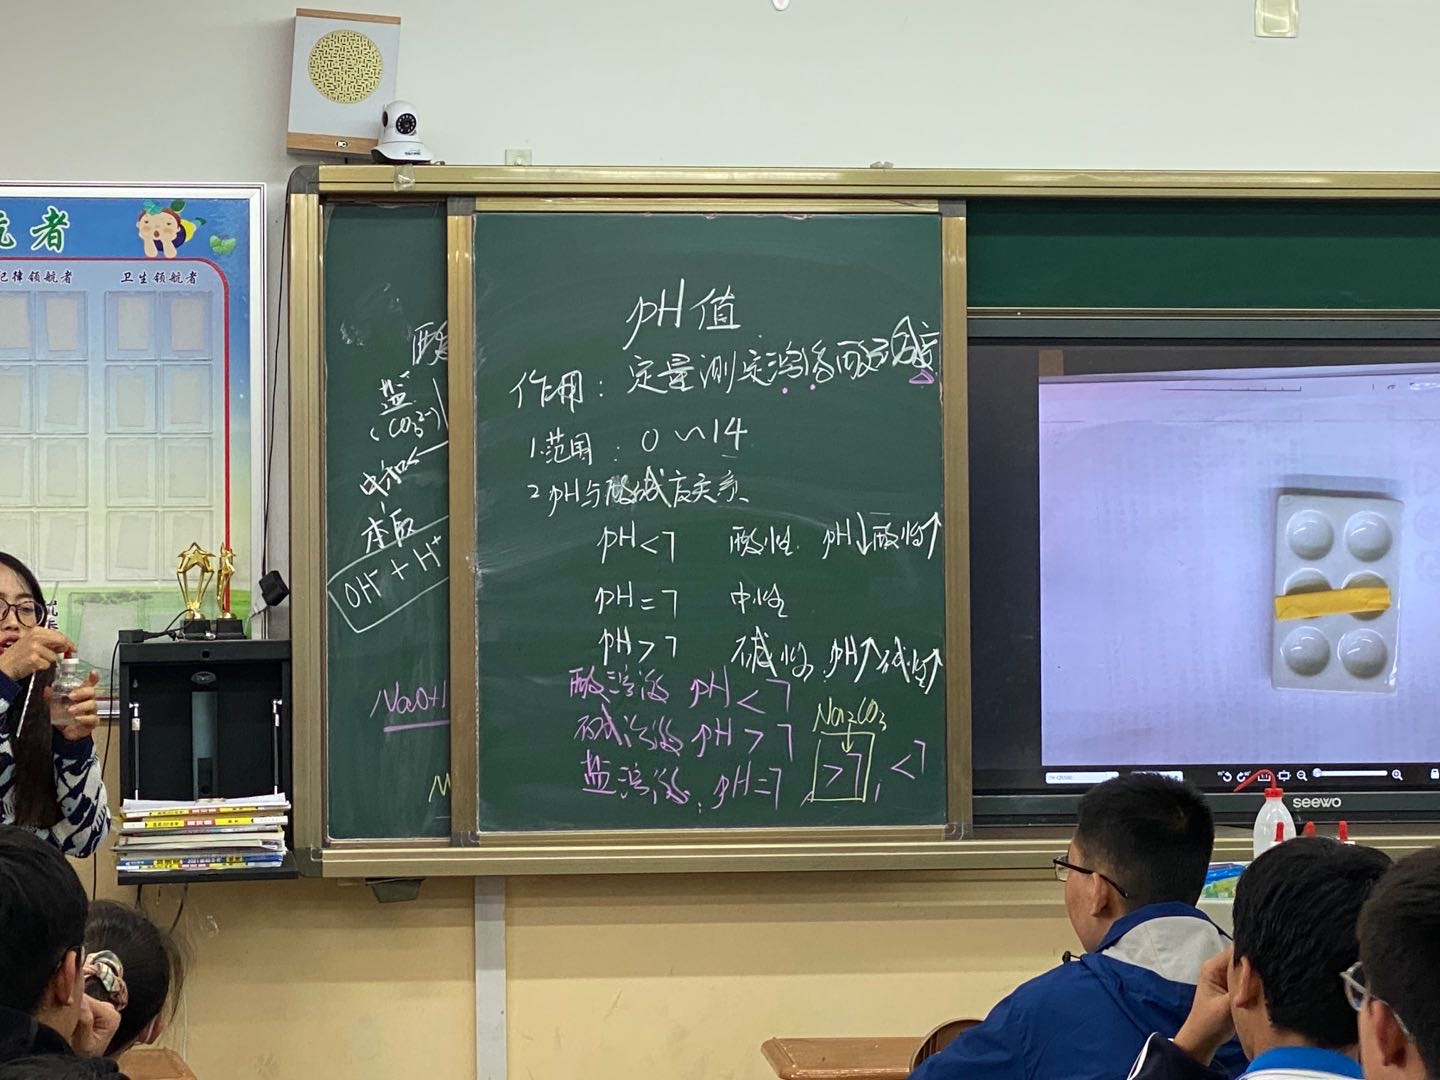 航者
纪律领航者
卫生领航者
酸
盐
(CO₃²⁻)
中和
本质
OH⁻ + H⁺
NaOH
pH值
作用：定量测定溶液酸碱度
1.范围：0～14
2 pH与酸碱度关系
pH<7 酸性 pH↓酸性↑
pH=7 中性
pH>7 碱性 pH↑碱性↑
酸溶液 pH<7
碱溶液 pH>7
Na₂CO₃
盐溶液 pH=7, >7, <7
seewo